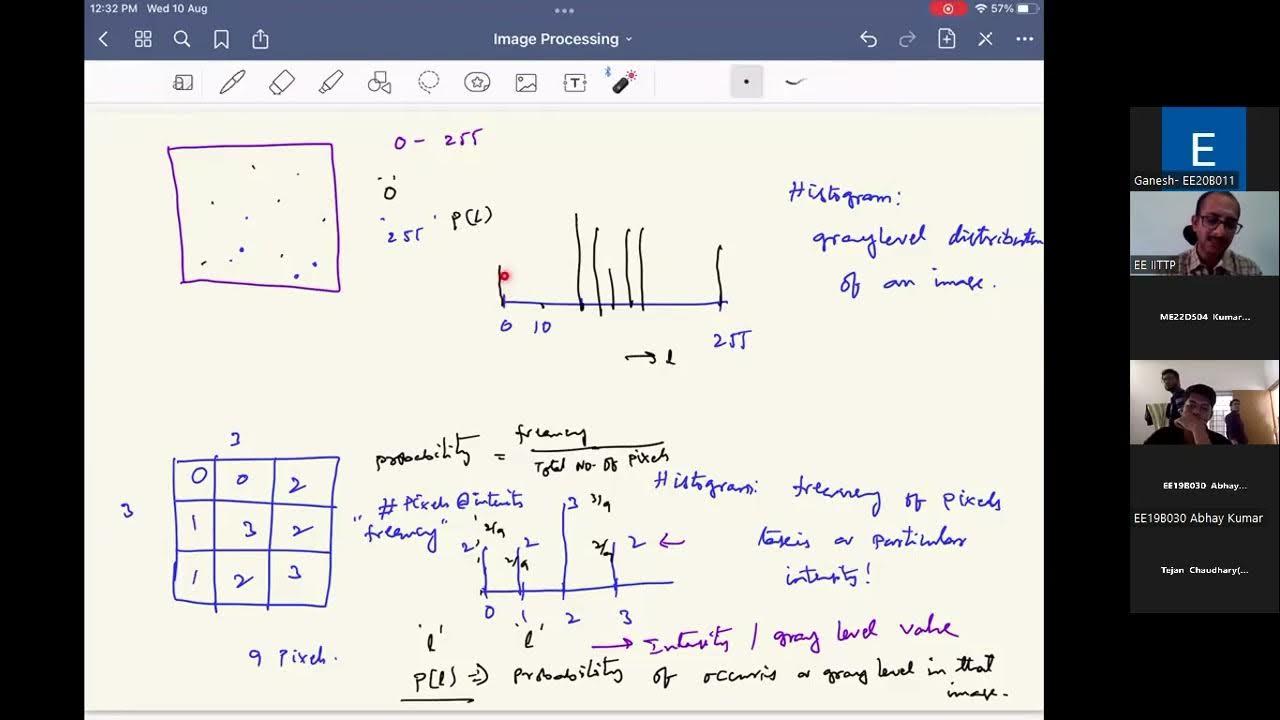 12:32 PM Wed 10 Aug
57%
Image Processing
T
0 - 255
'0'
'255'
P(l)
0 10 255
→ l
Histogram:
gray level distribution
of an image.
3
3
0 0 2
1 3 2
1 2 3
9 Pixel.
probability = frequency / Total No. Of Pixels
# Pixels @ intensity
"frequency"
2 2/9
2/9 2
3 3/9
2/9 2 ←
0 1 2 3
'l' 'l'
Histogram: frequency of pixels
a particular
intensity!
→ Intensity / gray level value
P(l) ⇒ Probability of occuris a gray level in that
image.
E
Ganesh- EE20B011
EE IITTP
ME22D504 Kumar...
EE19B030 Abhay...
EE19B030 Abhay Kumar
Tejan Chaudhary(...